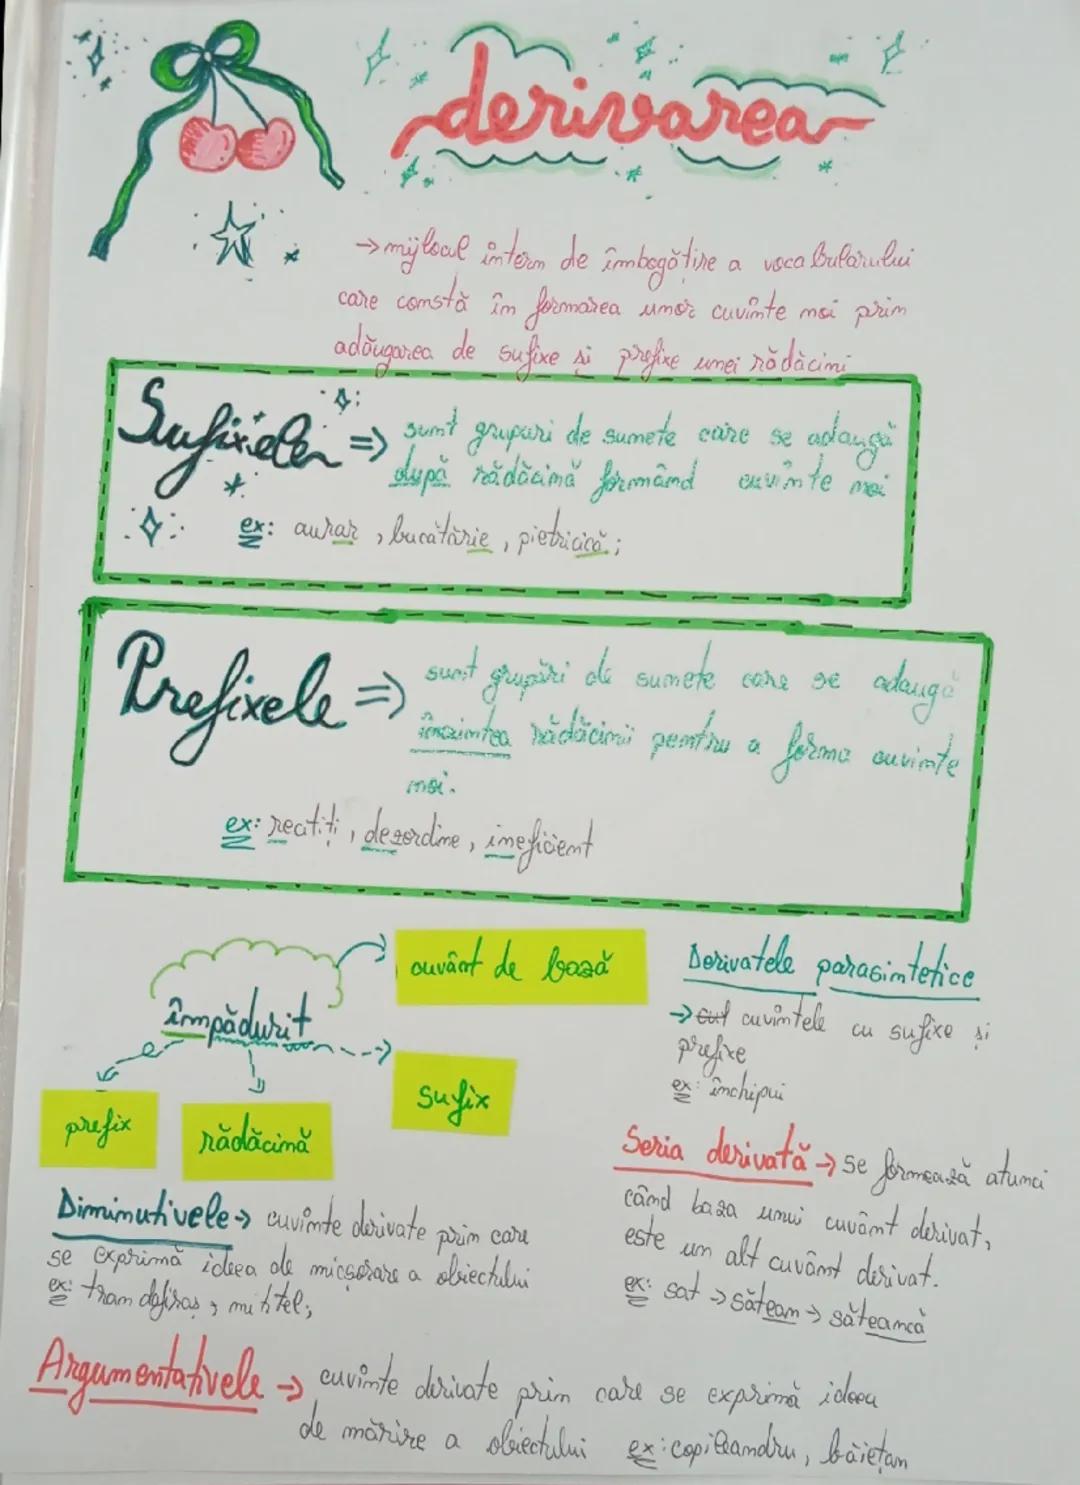 derivarea
→ mijlocul intern de îmbogățire a vocabularului
care constă în formarea unor cuvinte noi prin
adăugarea de sufixe și prefixe unei rădăcini
Sufixele => sunt grupări de sunete care se adaugă
după rădăcină formând cuvinte noi
ex: aurar, bucătărie, pietricică;
Prefixele => sunt grupări de sunete care se adaugă
înaintea rădăcinii pentru a forma cuvinte
noi.
ex: recitiți, dezordine, ineficient
cuvânt de bază
împădurit
prefix
rădăcină
sufix
Derivatele parasintetice
→ cuvintele cu sufixe și
prefixe
ex: închipui
Seria derivată → se formează atunci
când baza unui cuvânt derivat,
este un alt cuvânt derivat.
ex: sat → sătean → săteancă
Diminutivele → cuvinte derivate prin care
se exprimă ideea de micșorare a obiectului
ex: trandafiraș,
Argumentativele → cuvinte derivate prin care se exprimă ideea
de mărire a obiectului ex: copileandru, băiețan